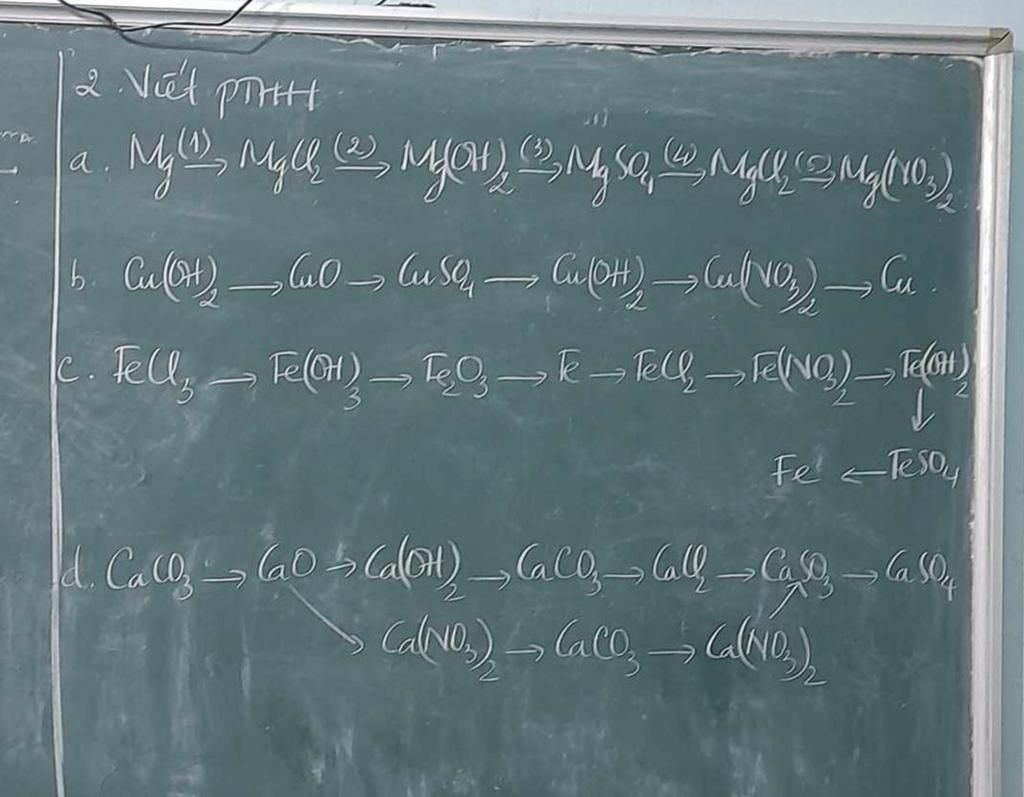 2. Viết PTHH
a. Mg (1)→ MgCl₂ (2)→ Mg(OH)₂ (3)→ MgSO₄ (4)→ MgCl₂ (5)→ Mg(NO₃)₂
b. Cu(OH)₂ → CuO → CuSO₄ → Cu(OH)₂ → Cu(NO₃)₂ → Cu.
c. FeCl₃ → Fe(OH)₃ → Fe₂O₃ → Fe → FeCl₂ → Fe(NO₃)₂ → Fe(OH)₂
↓
Fe ← FeSO₄
d. CaCO₃ → CaO → Ca(OH)₂ → CaCO₃ → CaCl₂ → CaSO₃ → CaSO₄
↘ Ca(NO₃)₂ → CaCO₃ → Ca(NO₃)₂ ↗